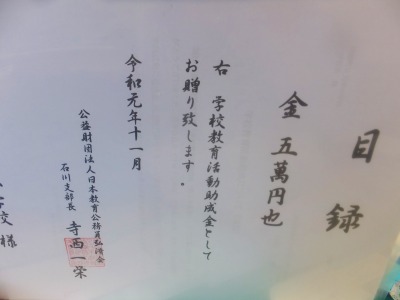 目録
金 五萬円也
右 学校教育活動助成金として
お贈り致します。
令和元年十一月
公益財団法人日本教育公務員弘済会
石川支部長 寺西一栄
校様